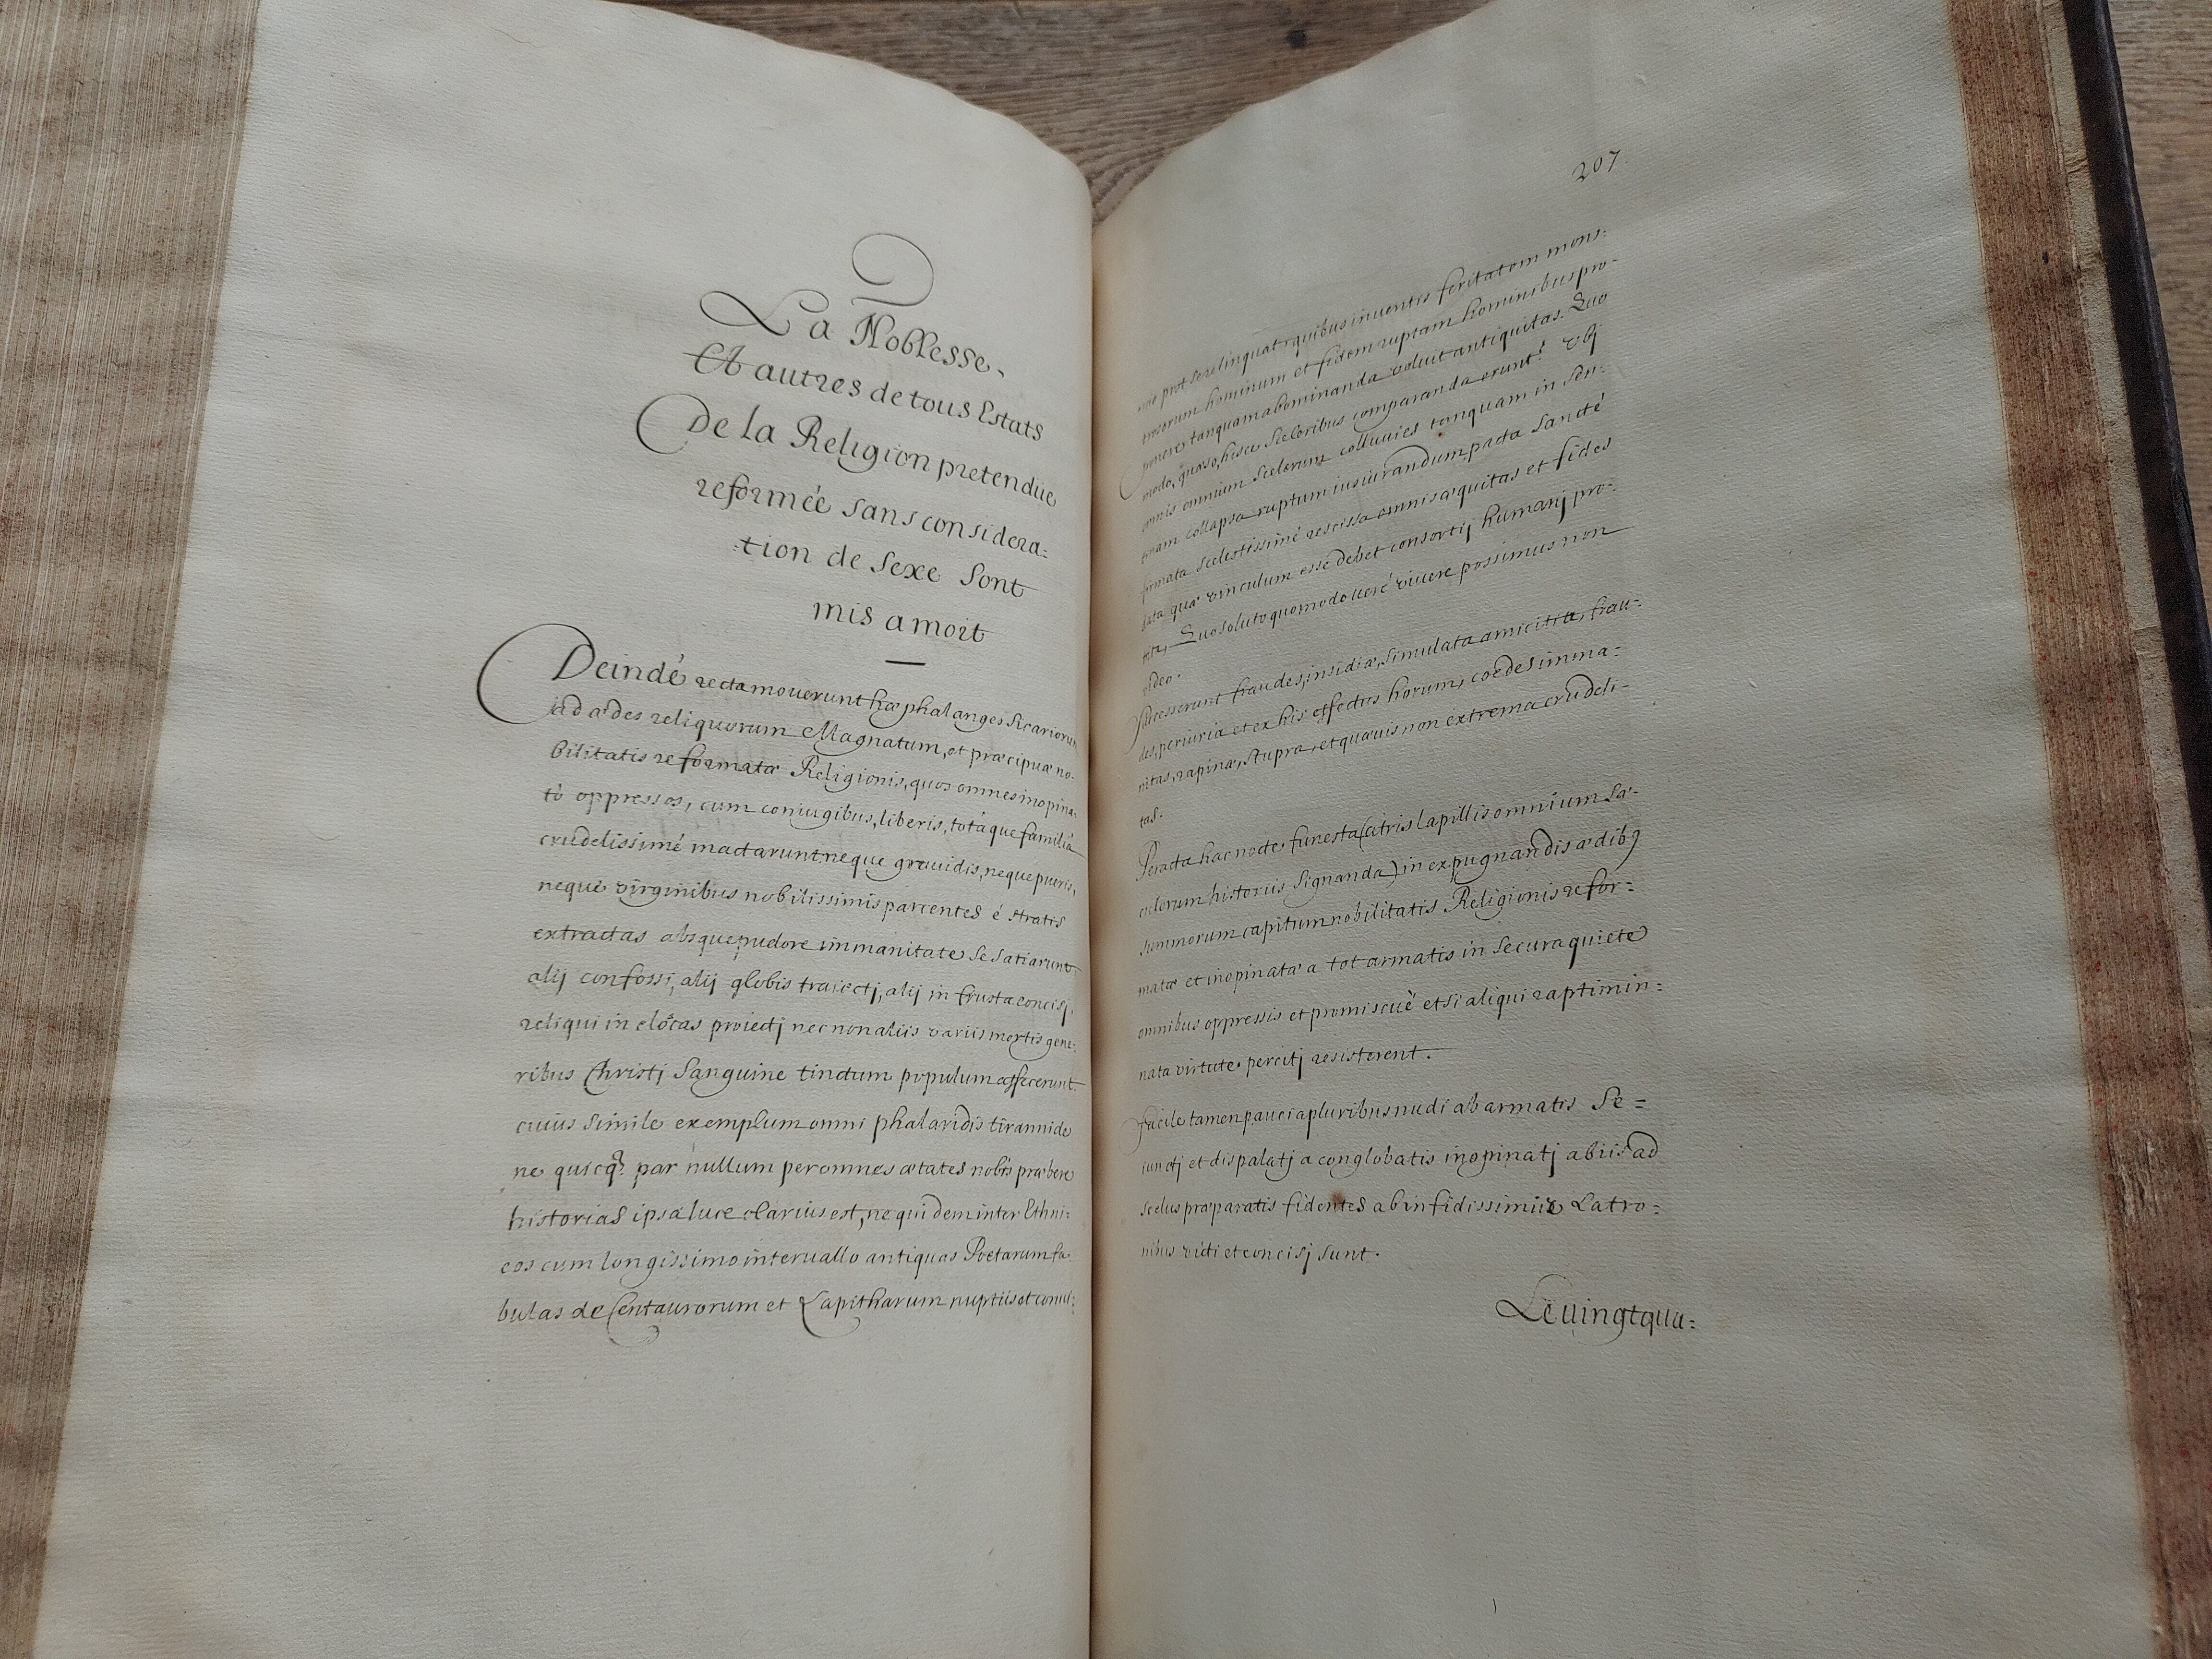 La Noblesse
Et autres de tous Estats
De la Religion pretendüe
reformée sans considera=
=tion de Sexe Sont
mis a mort
Deindé recta mouerunt hæ phalanges Sicariorum
ad ædes reliquorum Magnatum, et præcipuæ no-
bilitatis reformatæ Religionis, quos omnes inopina-
tò oppressos, cum coniugibus, liberis, totâque familiâ
crudelissimé mactarunt neque grauidis, neque pueris,
neque virginibus nobilissimis parcentes é stratis
extractas absque pudore immanitate Se Satiarunt
alij confossi, alij globis traiectj, alij in frusta concisj,
reliqui in cloâcas proiectj nec non aliis variis mortis gene-
ribus Christj Sanguine tinctum populum affecerunt.
cuius Simile exemplum omni phalaridis tirannide
ne quicq3. par nullum per omnes ætates nobis præbere
historias ipsa luce clarius est, ne quidem inter Ethni=
cos cum longissimo interuallo antiquas Poetarum fa-
bulas de Centaurorum et Lapitharum nuptiis et conui=
207.
uio prot se relinquat, quibus inuentis feritatem mons=
trosorum hominum et fidem ruptam hominibus pro-
ponere, tanquam abominanda voluit antiquitas. Quo
modo, quæso, hisce Sceloribus comparanda erunt? Vbj
omnis omnium Scelerum colluuies tanquam in Sen=
tinam collapsa ruptum iusiurandum, pacta Sancté
firmata Scelestissimé rescissa omnis æquitas et fides
data quæ vinculum esse debet consortij humanj pro-
Quo soluto quomodo ueré viuere possimus non
video.
Successerunt fraudes, insidiæ, Simulata amicitia, frau=
des, periuria et ex his effectus horum, cœdes imma=
nitas, rapinæ, Stupra, et quæuis non extrema crudeli-
tas.
Peracta hac nocte funesta (atris lapillis omnium Sæ-
culorum historiis Signanda) in expugnandis ædib9
Summorum capitum nobilitatis Religionis refor=
matæ et inopinatæ a tot armatis in Secura quiete
omnibus oppressis et promiscuè etsi aliqui raptim in=
nata virtute percitj resisterent.
facile tamen pauci a pluribus nudi ab armatis Se=
iunctj et dispalatj a conglobatis inopinatj abiis ad
Scelus præparatis fidentes ab infidissimis Latro=
nibus victi et concisj Sunt.
Le uingt qua=